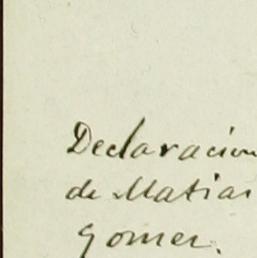 Declaracion
de Matias
Gomer.